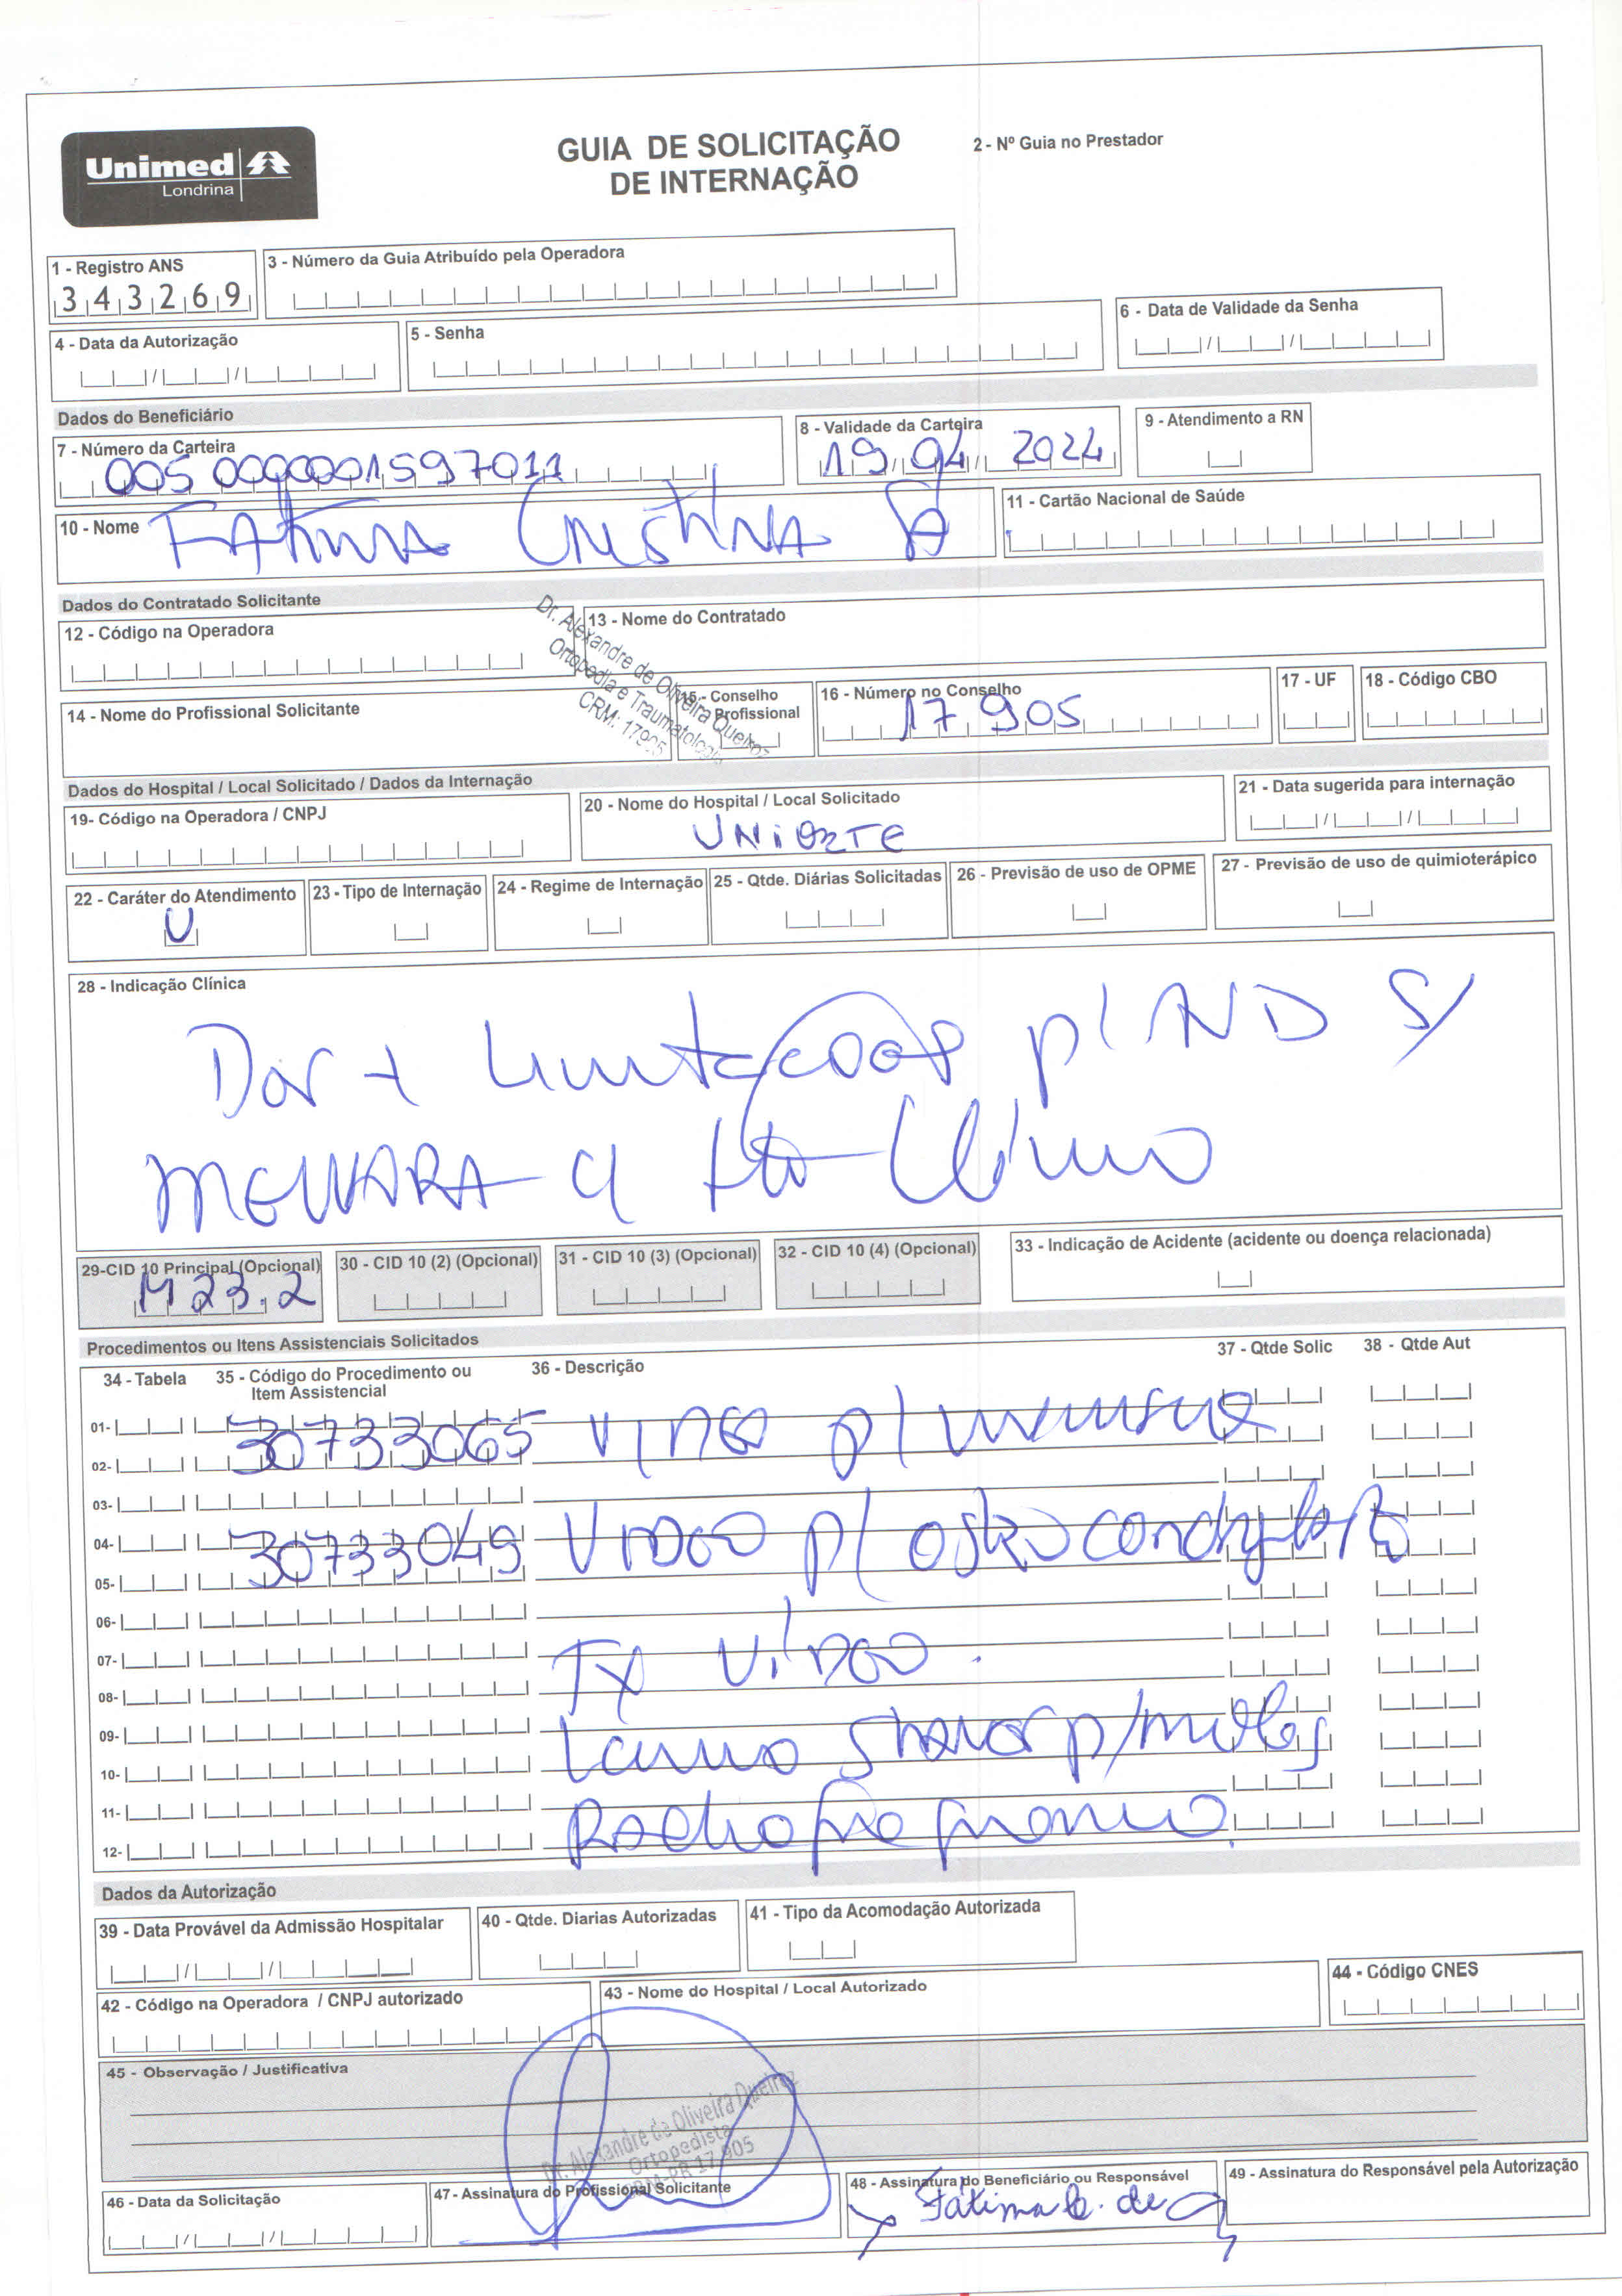 Unimed
Londrina
GUIA DE SOLICITAÇÃO
DE INTERNAÇÃO
2 - Nº Guia no Prestador
1 - Registro ANS
343269
3 - Número da Guia Atribuído pela Operadora
4 - Data da Autorização
5 - Senha
6 - Data de Validade da Senha
Dados do Beneficiário
7 - Número da Carteira
005 0000001597011
8 - Validade da Carteira
19 04 2024
9 - Atendimento a RN
10 - Nome
FATIMA CRISTINA
11 - Cartão Nacional de Saúde
Dados do Contratado Solicitante
12 - Código na Operadora
13 - Nome do Contratado
Dr. Alexandre de Oliveira Queiroz
Ortopedia e Traumatologia
CRM: 17905
14 - Nome do Profissional Solicitante
15 - Conselho Profissional
16 - Número no Conselho
17 905
17 - UF
18 - Código CBO
Dados do Hospital / Local Solicitado / Dados da Internação
19- Código na Operadora / CNPJ
20 - Nome do Hospital / Local Solicitado
UNIORTE
21 - Data sugerida para internação
22 - Caráter do Atendimento
U
23 - Tipo de Internação
24 - Regime de Internação
25 - Qtde. Diárias Solicitadas
26 - Previsão de uso de OPME
27 - Previsão de uso de quimioterápico
28 - Indicação Clínica
Dor + limitação p/ AND S/
MELHORA C/ tto Clínico
29-CID 10 Principal (Opcional)
M 23.2
30 - CID 10 (2) (Opcional)
31 - CID 10 (3) (Opcional)
32 - CID 10 (4) (Opcional)
33 - Indicação de Acidente (acidente ou doença relacionada)
Procedimentos ou Itens Assistenciais Solicitados
34 - Tabela
35 - Código do Procedimento ou Item Assistencial
36 - Descrição
37 - Qtde Solic
38 - Qtde Aut
01-
30733065 VIDEO p/ menisco
02-
03-
04-
30733049 VIDEO p/ osteocondroplastia
05-
06-
07-
TX VÍDEO
08-
09-
Lamina Shaver p/ partes moles
10-
11-
Radiofrequencia
12-
Dados da Autorização
39 - Data Provável da Admissão Hospitalar
40 - Qtde. Diarias Autorizadas
41 - Tipo da Acomodação Autorizada
42 - Código na Operadora / CNPJ autorizado
43 - Nome do Hospital / Local Autorizado
44 - Código CNES
45 - Observação / Justificativa
Dr. Alexandre de Oliveira Queiroz
Ortopedista
CRM-PR 17.905
46 - Data da Solicitação
47 - Assinatura do Profissional Solicitante
48 - Assinatura do Beneficiário ou Responsável
Fátima C. de
49 - Assinatura do Responsável pela Autorização